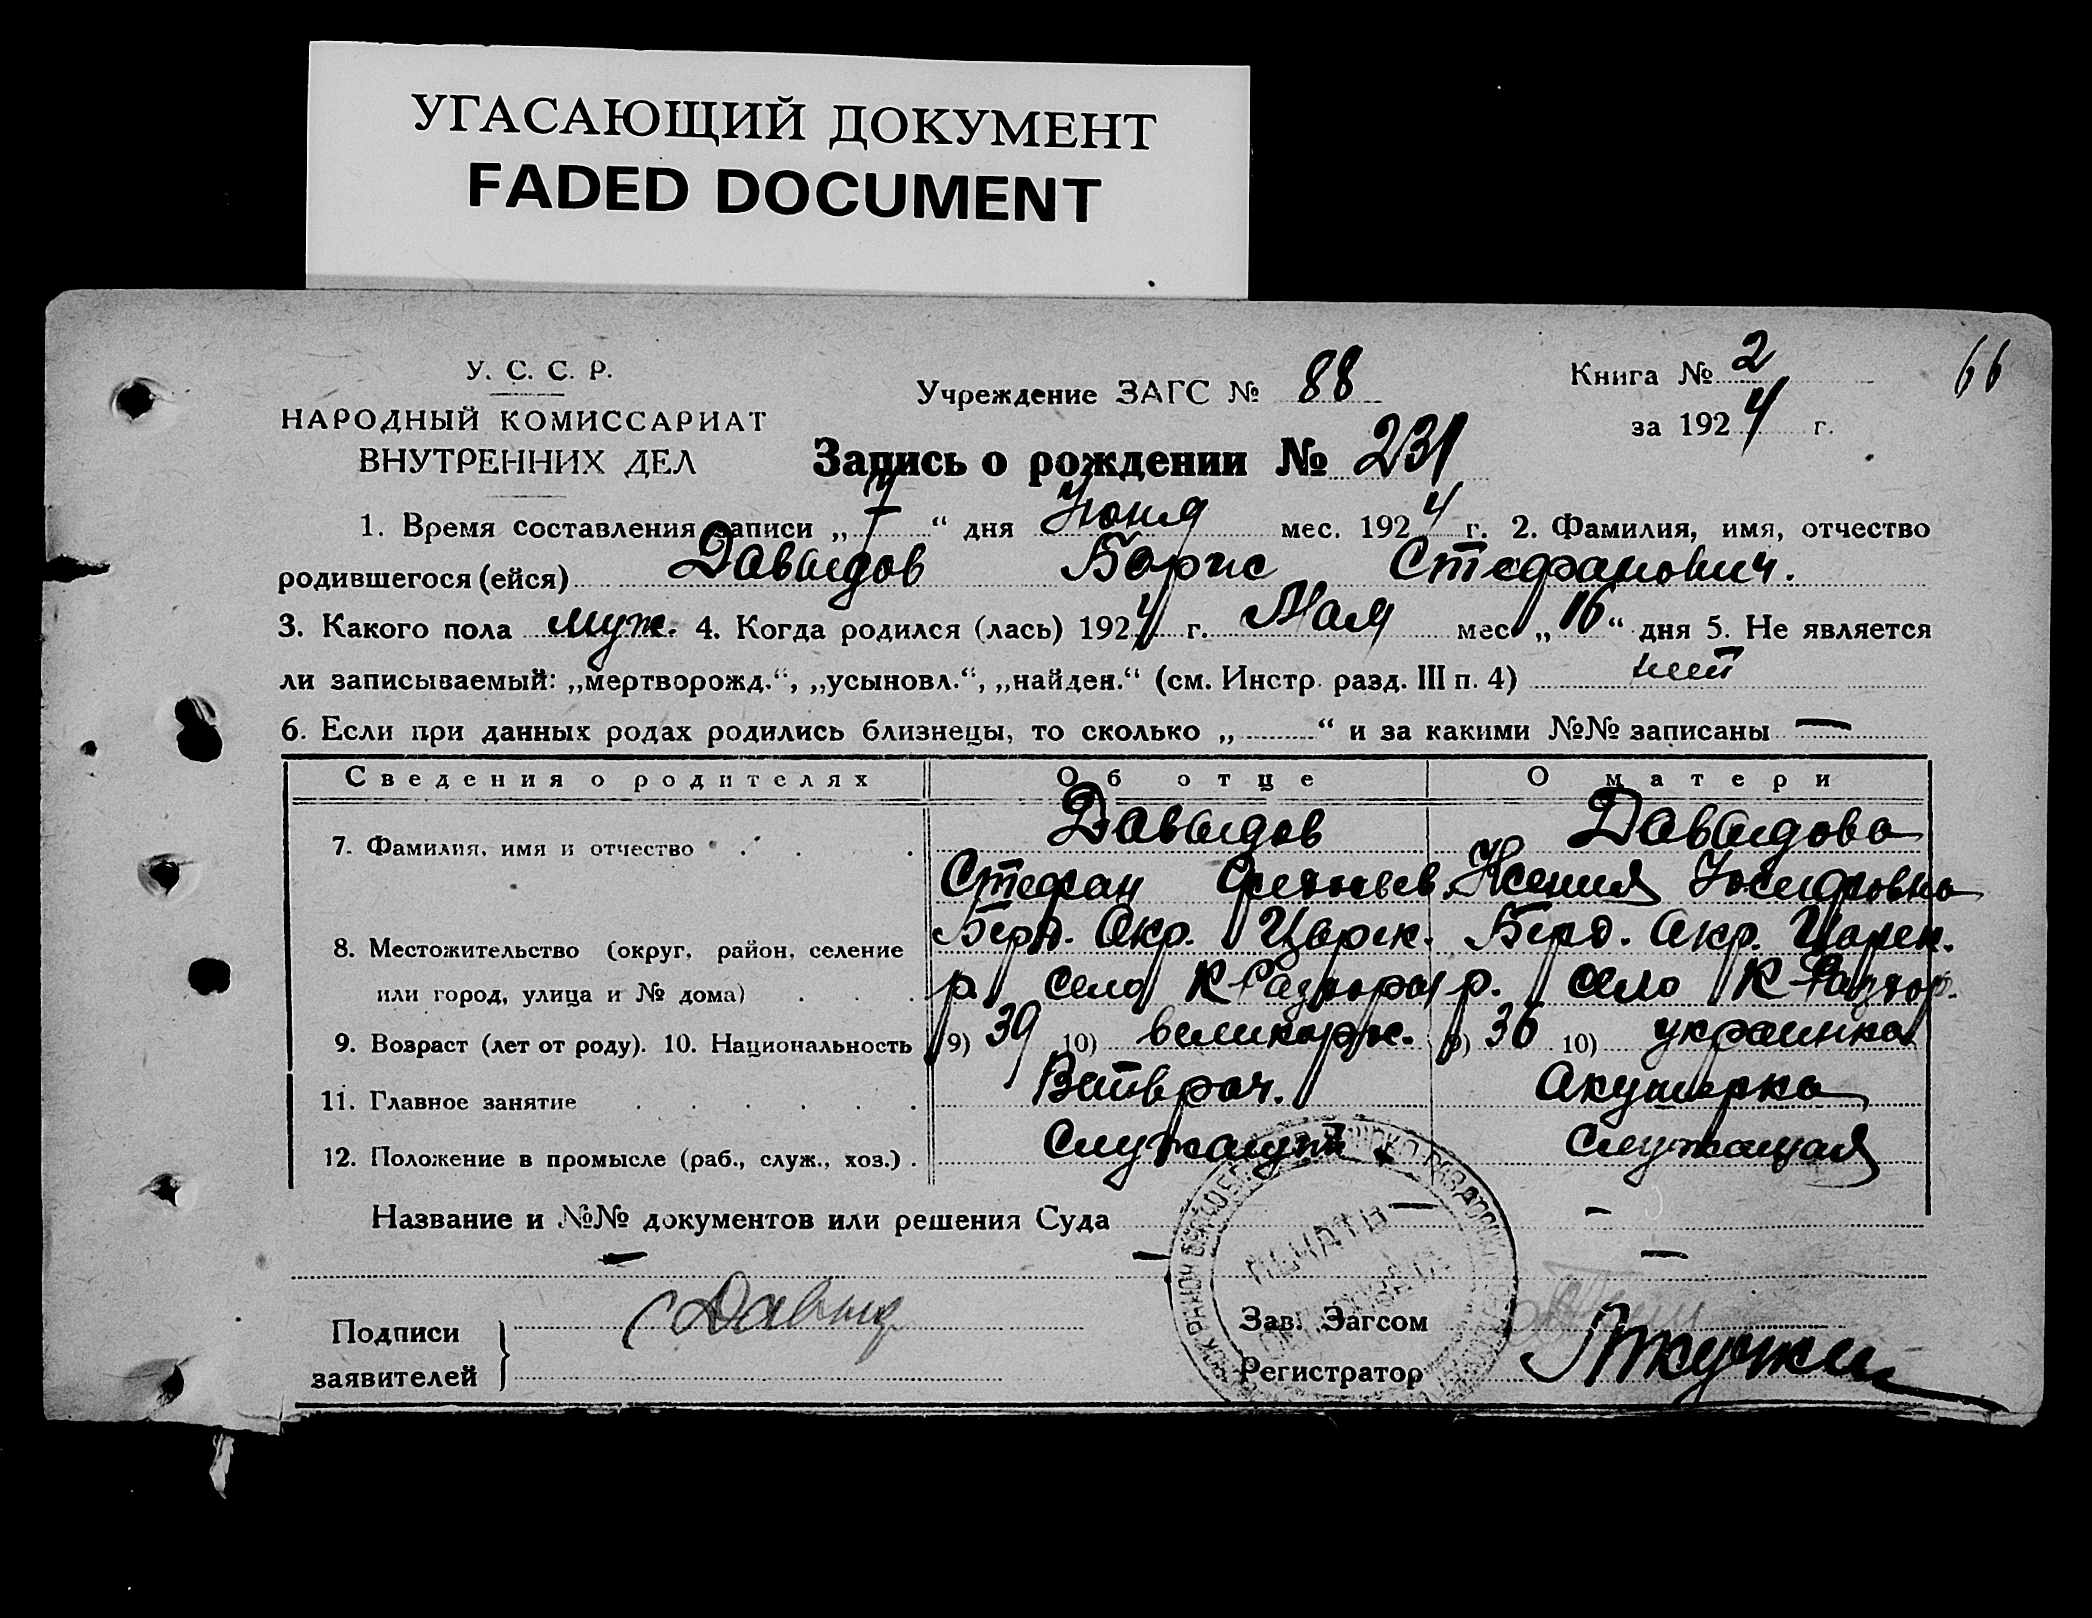 УГАСАЮЩИЙ ДОКУМЕНТ
FADED DOCUMENT
У. С. С. Р.
НАРОДНЫЙ КОМИССАРИАТ
ВНУТРЕННИХ ДЕЛ
Учреждение ЗАГС № 88
Книга № 2
за 1924 г.
66
Запись о рождении № 231
1. Время составления записи „7“ дня Июня мес. 1924 г. 2. Фамилия, имя, отчество
родившегося (ейся) Давыдов Борис Стефанович.
3. Какого пола муж. 4. Когда родился (лась) 1924 г. Мая мес. „16“ дня 5. Не является
ли записываемый: „мертворожд.“, „усыновл.“, „найден.“ (см. Инстр. разд. III п. 4) нет
6. Если при данных родах родились близнецы, то сколько „ “ и за какими №№ записаны —
Сведения о родителях Об отце О матери
7. Фамилия, имя и отчество Давыдов Давыдова
Стефан Ксения Иосифовна
8. Местожительство (округ, район, селение Берд. Окр. Царек. Берд. Окр. Царек.
или город, улица и № дома) р. село К-Раздоры р. село К-Раздор.
9. Возраст (лет от роду). 10. Национальность 9) 39 10) великорос. 9) 36 10) украинка
11. Главное занятие Ветврач. Акушерка
12. Положение в промысле (раб., служ., хоз.) Служащий Служащая
Название и №№ документов или решения Суда — —
— — —
Подписи
заявителей
Давыд
Зав. Загсом
Регистратор
ПЕЧАТЬ